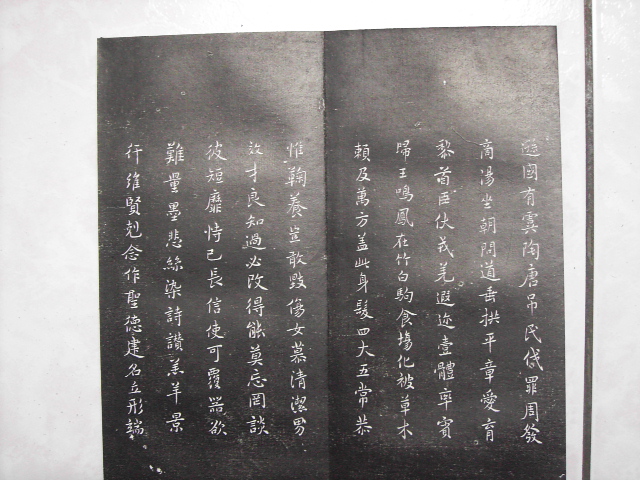 遜國有虞陶唐吊民伐罪周發
商湯坐朝問道垂拱平章愛育
黎首臣伏戎羌遐迩壹體率賓
歸王鳴鳳在竹白駒食場化被草木
賴及萬方盖此身髮四大五常恭
惟鞠養豈敢毀傷女慕清潔男
效才良知過必改得能莫忘罔談
彼短靡恃己長信使可覆器欲
難量墨悲絲染詩讃羔羊景
行維賢剋念作聖德建名立形端